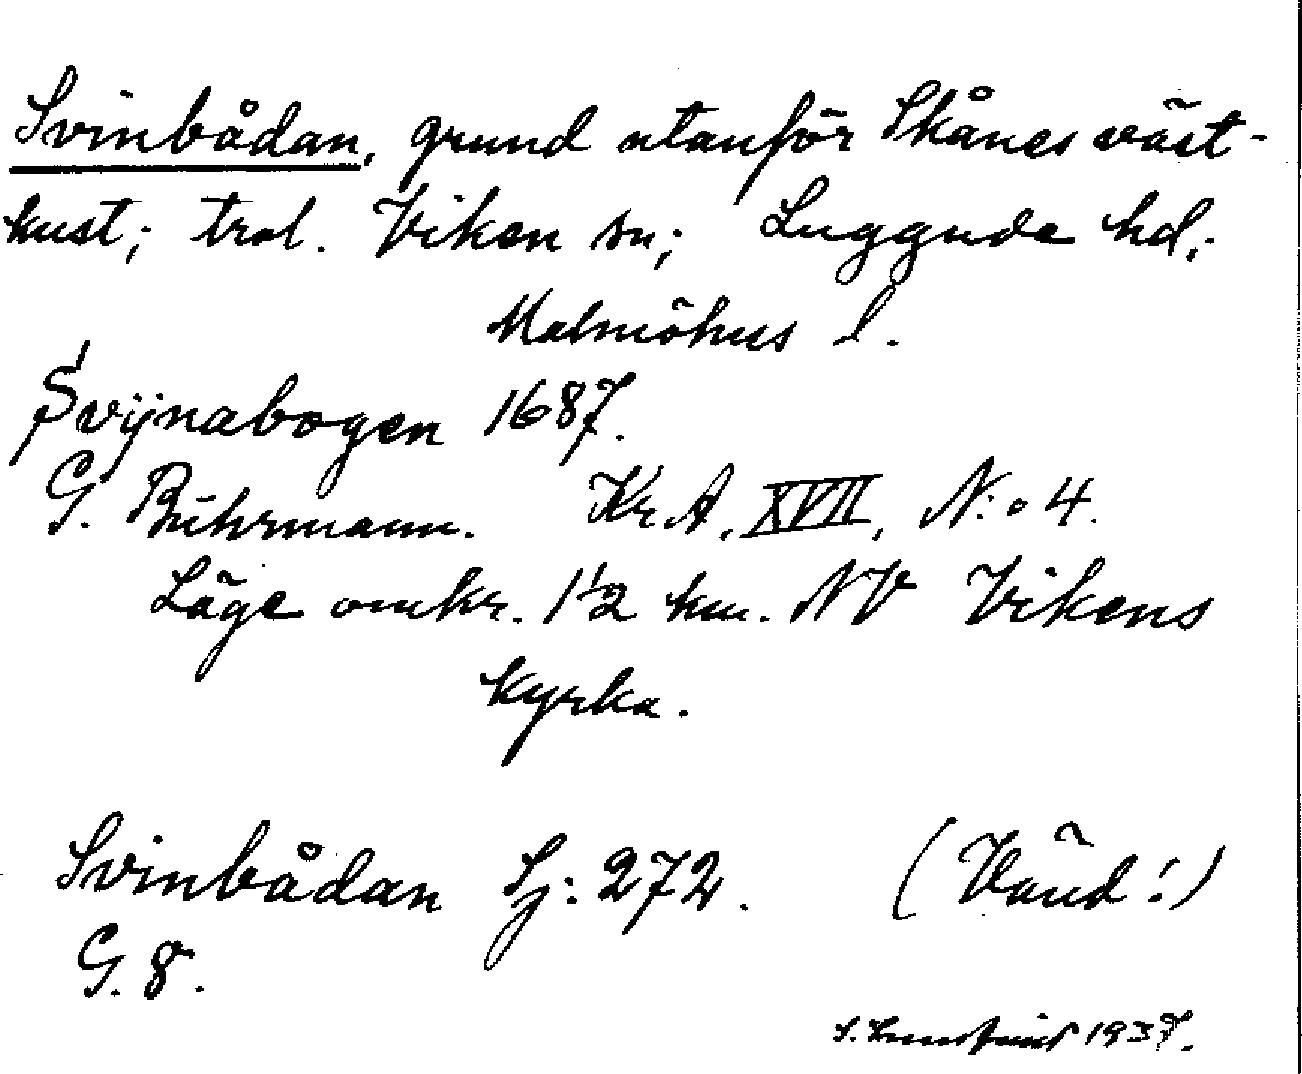 Svinbådan, grund utanför Skånes väst-
kust; trol. Viken sn; Luggude hd;
Malmöhus l.
Svijnabogen 1687.
G. Buhrmann. Kr.A. XVII, N:o 4.
Läge omkr. 1½ km. NV Vikens
kyrka.
Svinbådan Sj: 272. (Vänd!)
G. 8.
S. 1937.